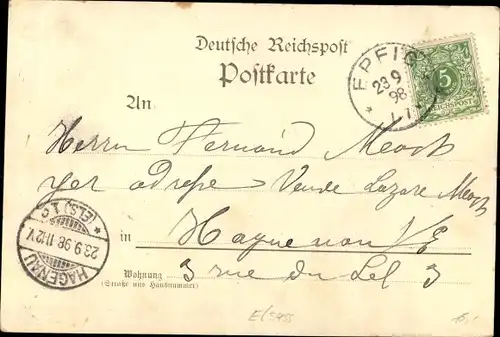 Deutsche Reichspost
Postkarte
EPFIG
23 9
98
5
REICHSPOST
An
Herrn Fernand Moock
per adresse Veuve Lazare Moock
in Haguenau i/E
Wohnung 3 rue du Sel 3
(Straße und Hausnummer)
HAGENAU
23.9.98.11-12V.
* (ELS.) 1 c
E/5455